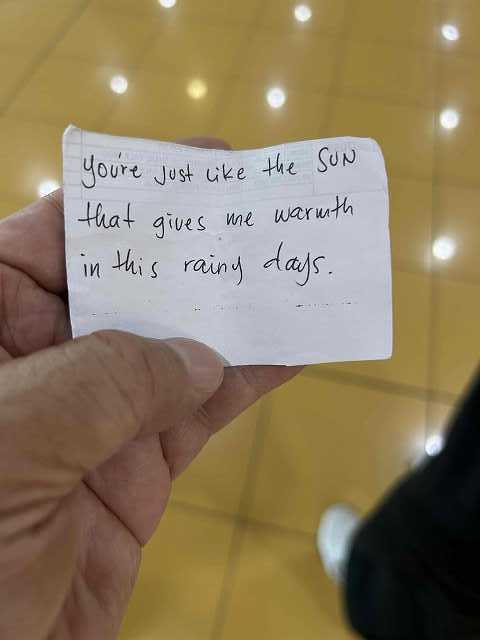 you're Just like the SUN
that gives me warmth
in this rainy days.